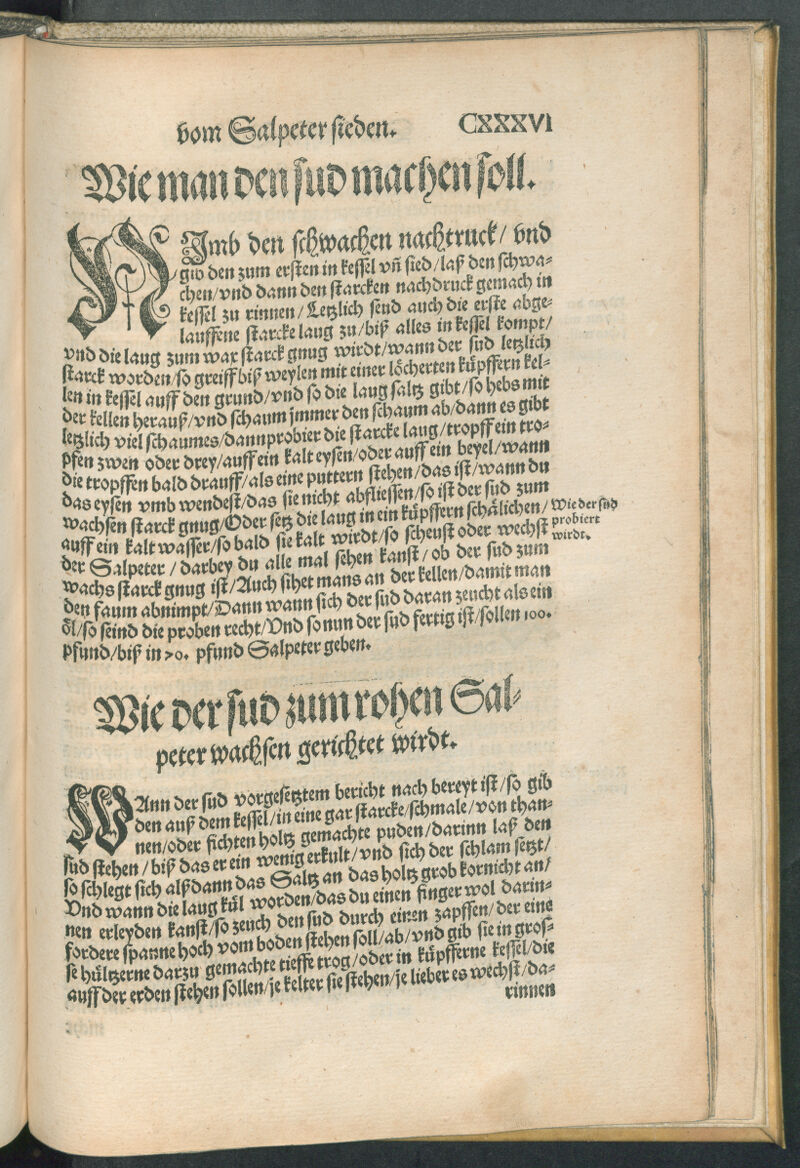 vom Salpeter sieden. CXXXVI
Wie man den sud machen soll.
NJmb den schwachen nachtruck/ vnd
gib den zum ersten in kessel vñ sied/laß den schwa-
chen/vnd dann den starcken nachdruck gemach in
kessel zu rinnen/Letzlich send auch die erste abge-
lauffene starcke laug zu/biß alles in kessel kompt/
vnd die laug zum war starck gnug wirdt/wann der sud letzlich
starck worden/so greiff biß weylen mit einer lo̊cherten kůpffern kel-
len in kessel auff den grund/vnd so die laug saltz gibt/so hebs mit
der kellen herauß/vnd schaum jmmer den schaum ab/dann es gibt
letzlich viel schaumes/dannprobier die starcke laug/tropff ein tro-
pfen zwen oder drey/auff ein kalt eysen/oder auff ein beyel/wann
die tropffen bald drauff/als eine puttern stehen/das ist/wann du
das eysen vmb wendest/das sie nicht abfliessen/so ist der sud zum
wachsen starck gnug/Oder setz die laug in ein kůpffern schålichen/
auff ein kalt wasser/so bald sie kalt wirdt/so scheust oder wechst
der Salpeter / darbey du alle mal sehen kanst/ ob der sud zum
wachs starck gnug ist/Auch sihet mans an der kellen/damit man
den faum abnimpt/Dann wann sich der sud daran zeucht als ein
o̊l/so seind die proben recht/Vnd so nun der sud fertig ist/sollen 100.
pfund/biß in 70. pfund Salpeter geben.
Wie der sud
probiert
wirdt.
Wie der sud zum rohen Sal-
peter wachsen gerichtet wirdt.
WAnn der sud vorgesetztem bericht nach bereyt ist/so gib
den auß dem kessel/in eine gar starcke/schmale/von than-
nen/oder fichten holtz gemachte puden/darinn laß den
sud stehen/biß das er ein wenig erkult/vnd sich der schlam setzt/
so schlegt sich alßdann das Saltz an das holtz grob kornicht an/
Vnd wann die laug kůl worden/das du einen finger wol darin-
nen erleyden kanst/so zeuch den sud durch einen zapffen/der eine
fordere spanne hoch vom boden stehen soll/ab/vnd gib sie in gros-
se hůltzerne darzu gemachte tieffe trog/oder in kůpfferne kessel/die
auff der erden stehen sollen/je kelter sie stehen/je lieber es wechst/da-
rinnen